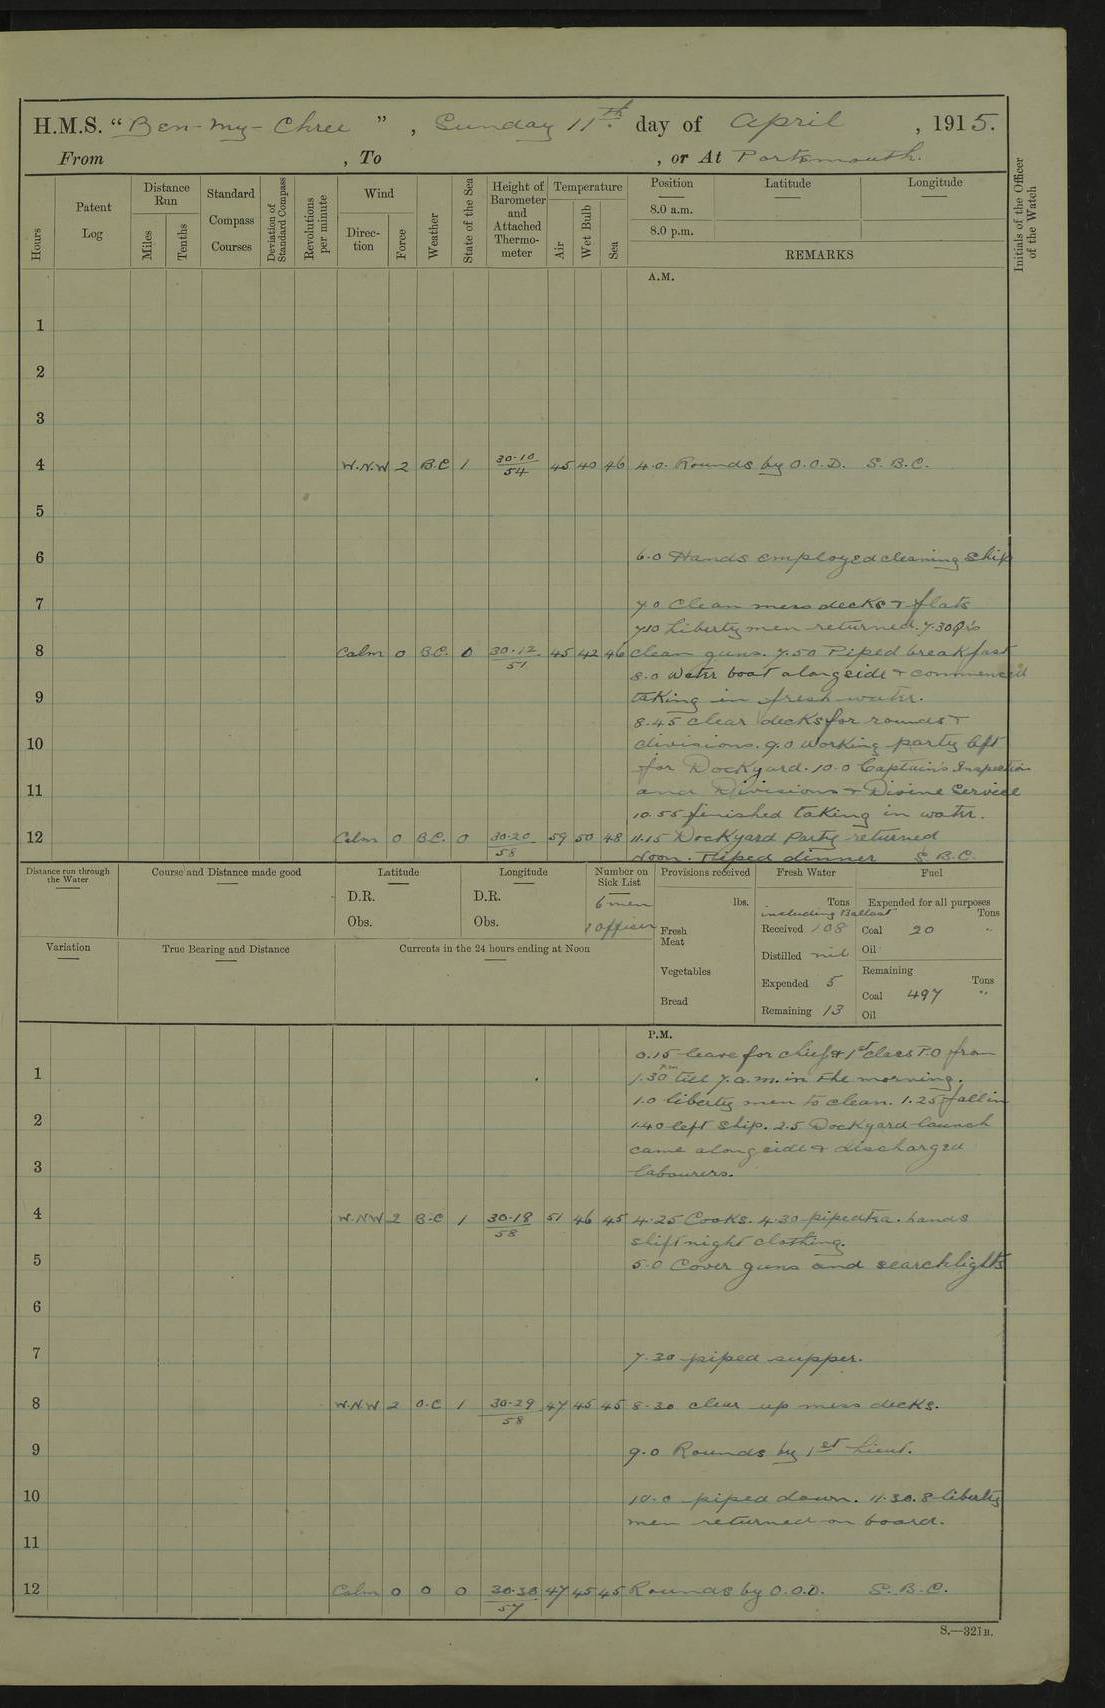 H.M.S. “Ben-my-Chree”, Sunday 11th day of April, 1915.
From , To , or At Portsmouth.
Hours Patent Log Distance Run Miles Tenths Standard Compass Courses Deviation of Standard Compass Revolutions per minute Wind Direction Force Weather State of the Sea Height of Barometer and Attached Thermometer Temperature Air Wet Bulb Sea Position Latitude Longitude
8.0 a.m.
8.0 p.m.
REMARKS
Initials of the Officer of the Watch
A.M.
1
2
3
4 W.N.W 2 B.C 1 30·10/54 45 40 46 4.0. Rounds by O.O.D. S.B.C.
5
6 6.0 Hands employed cleaning ship
7 7.0 Clean mess decks & flats
7.10 Liberty men returned. 7.30 Q's
8 Calm 0 B.C. 0 30·12/51 45 42 46 clean guns. 7.50 Piped breakfast
8.0 Water boat alongside & commenced
9 taking in fresh water.
8.45 clear decks for rounds &
10 divisions. 9.0 working party left
for Dockyard. 10.0 Captain's Inspection
11 and Divisions & Divine Service
10.55 finished taking in water.
12 Calm 0 B.C. 0 30·20/58 59 50 48 11.15 Dockyard Party returned
Noon. Piped dinner S.B.C.
Distance run through the Water Course and Distance made good Latitude Longitude Number on Sick List Provisions received Fresh Water Fuel
D.R. D.R. 6 men lbs. Tons Expended for all purposes
including Ballast Tons
Obs. Obs. 1 officer Fresh Meat Received 108 Coal 20 "
Variation True Bearing and Distance Currents in the 24 hours ending at Noon Distilled nil Oil
Vegetables Remaining
Expended 5 Tons
Bread Coal 497 "
Remaining 13 Oil
P.M.
0.15 leave for chief & 1st class P.O from
1 1.30 pm till 7.a.m. in the morning.
1.0 liberty men to clean. 1.25 fall in
2 1.40 left ship. 2.5 Dockyard launch
came alongside & discharged
3 labourers.
4 W.NW 2 B.C 1 30·18/58 51 46 45 4.25 Cooks. 4.30 piped tea. hands
shift night clothing.
5 5.0 Cover guns and searchlights
6
7 7.30 piped supper.
8 W.N.W 2 O.C 1 30·29/58 47 45 45 8.30 clear up mess decks.
9 9.0 Rounds by 1st Lieut.
10 10.0 piped down. 11.30. 8 liberty
men returned on board.
11
12 Calm 0 0 0 30·30/57 47 45 45 Rounds by O.O.D. S.B.C.
S.—321B.